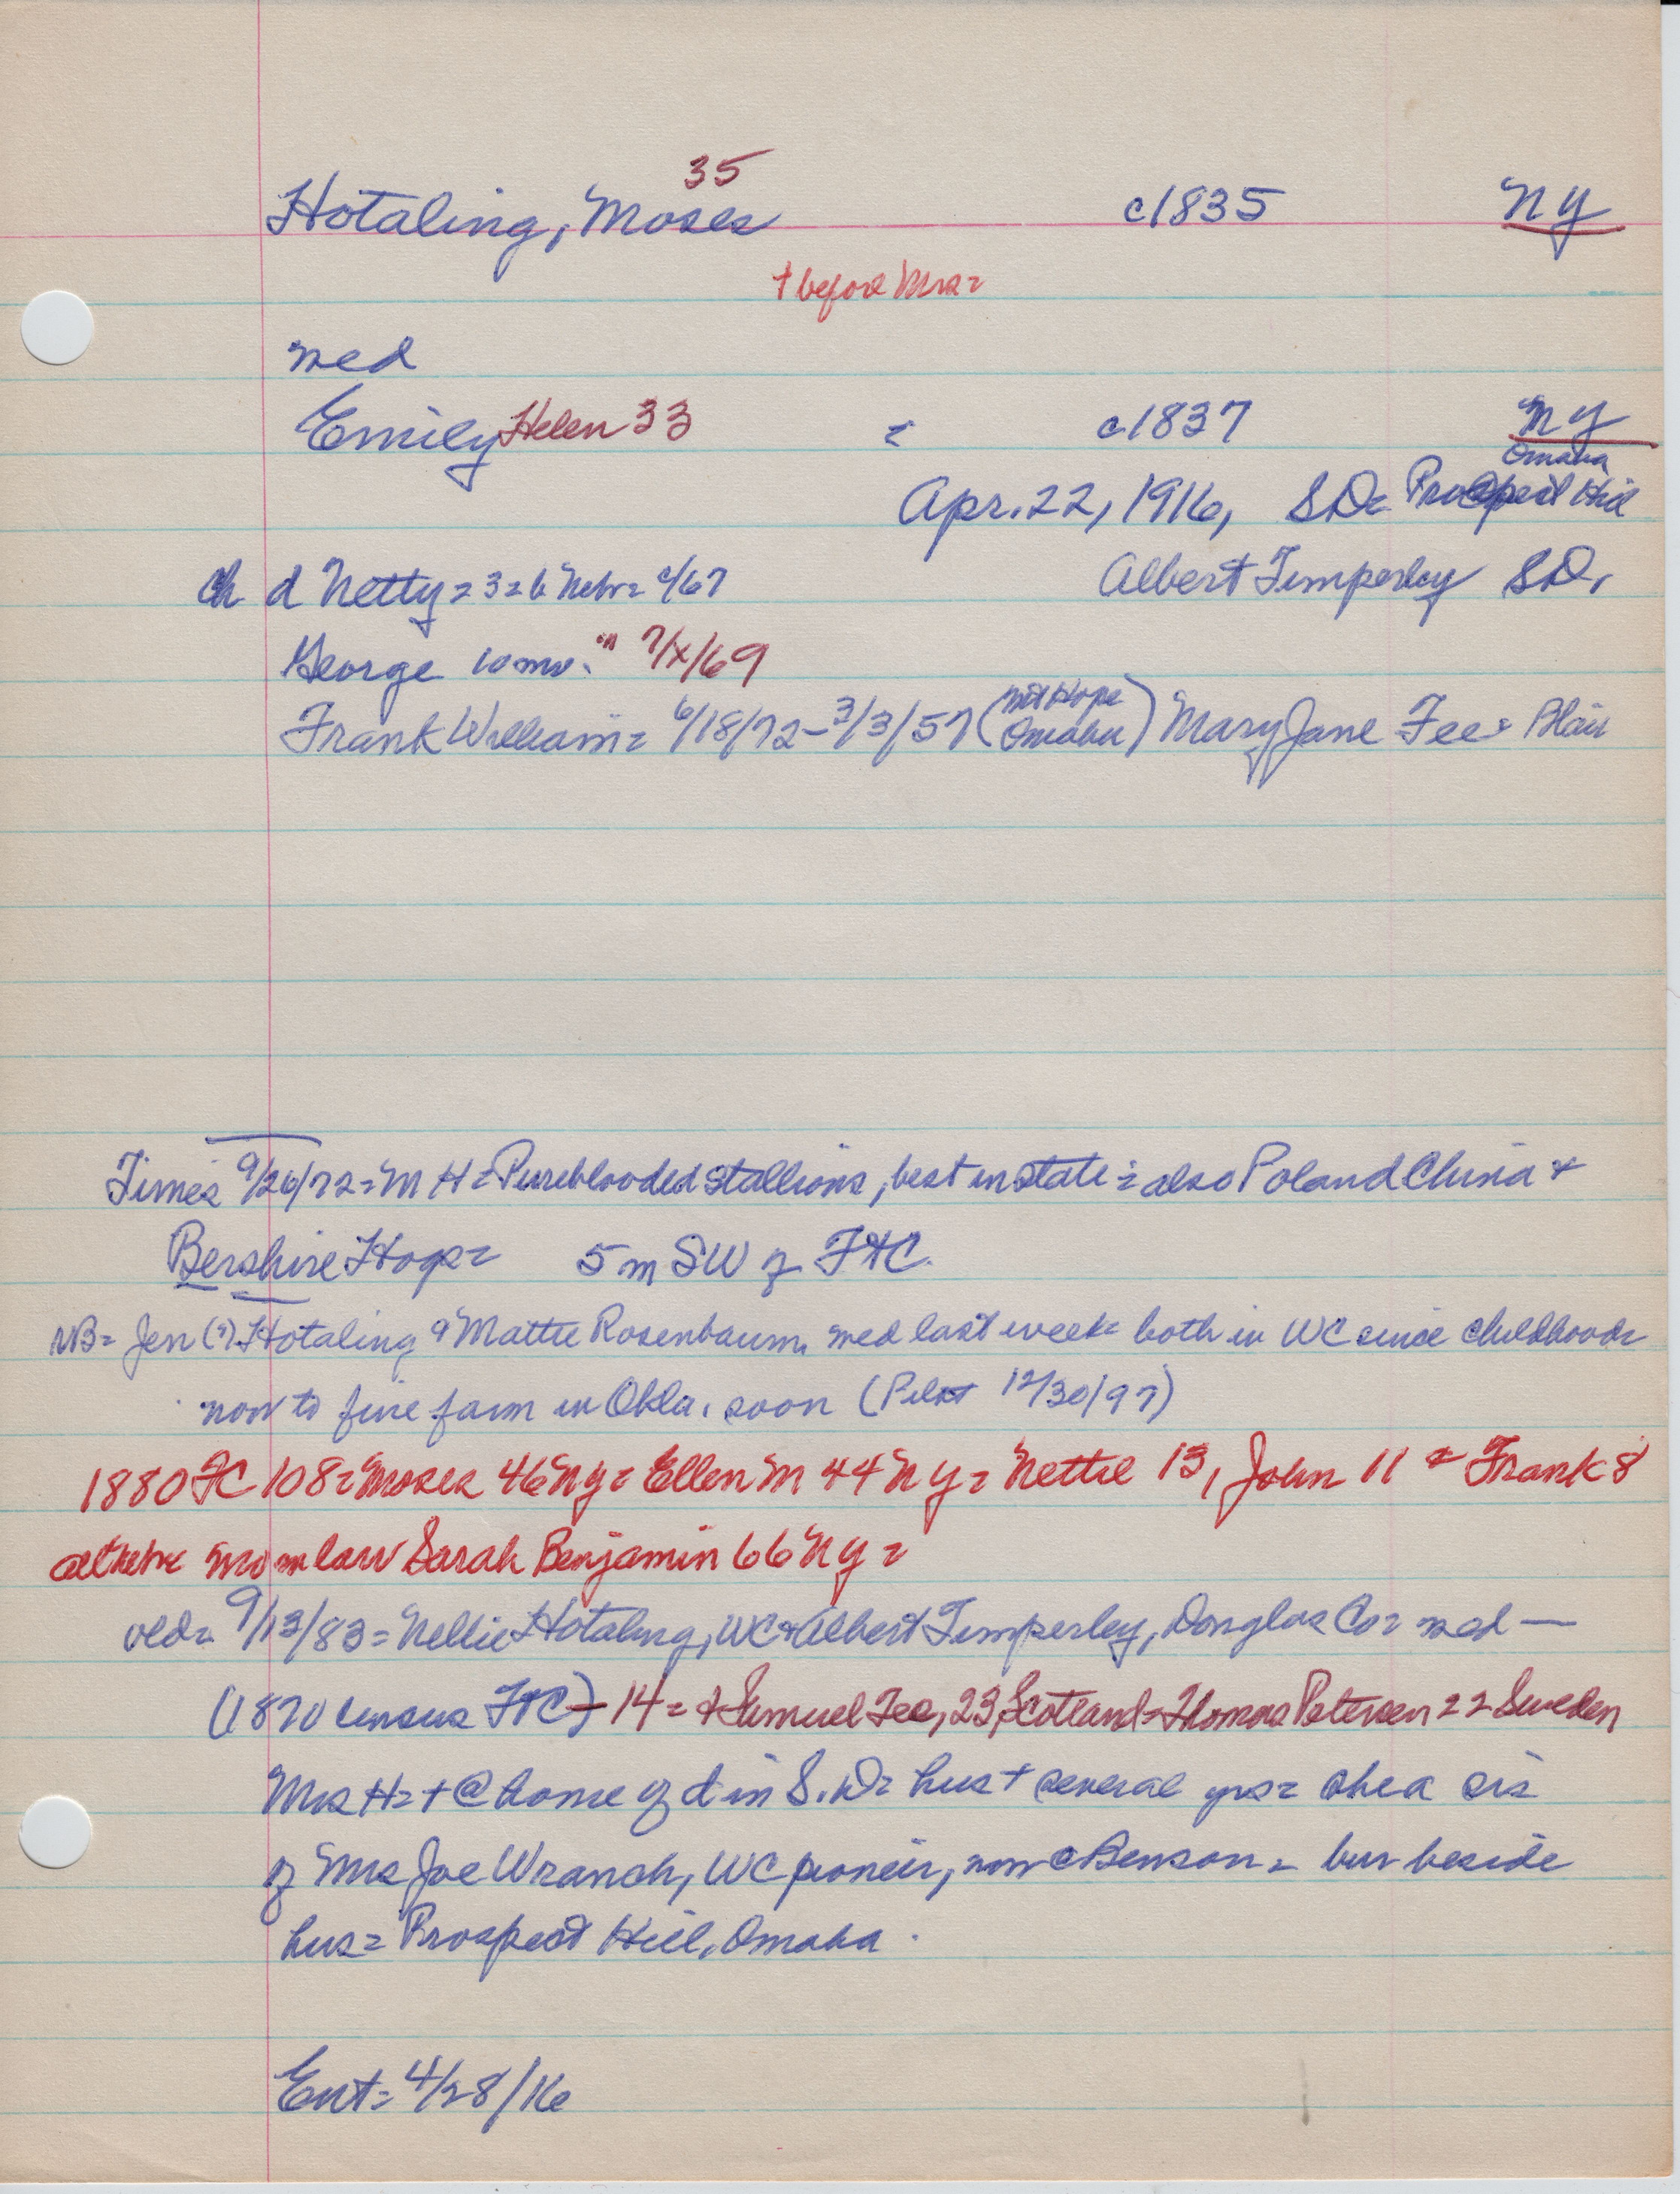 35
Hotaling, Moses c1835 NY
+ before Mrs =
med
Emily Helen 33 = c1837 NY
Omaha
Apr. 22, 1916, SD = Prospect Hill
ch d Netty = 3 = b Nebr = c/67 Albert Timperley SD.
George 10 mo. " 7/x/69
Mt Hope
Frank William = 6/18/72 - 3/3/57 (Omaha) Mary Jane Fee = Blair
Times 9/26/72 = M H = Pureblooded stallions, best in state = also Poland China +
Bershire Hogs = 5 m SW of FtC.
NB = Jen (?) Hotaling & Mattie Rosenbaum, med last week = both in WC since childhood =
now to fine farm in Okla. soon (Pilot 12/30/97)
1880 FC 108 = Moses 46 NY = Ellen M 44 NY = Nettie 13, John 11 + Frank 8
all Nebr mo in law Sarah Benjamin 66 NY =
9/13/83 = Nellie Hotaling, WC & Albert Timperley, Douglas Co = med —
(1870 census FtC) - 14 = + Samuel Fee, 23, Scotland = Thomas Petersen 22 Sweden
Mrs H = + @ home of d in S.D = hus + several yrs = she a sis
of Mrs Joe Wranch, WC pioneer, now @ Benson = bur beside
hus = Prospect Hill, Omaha.
Ent = 4/28/16